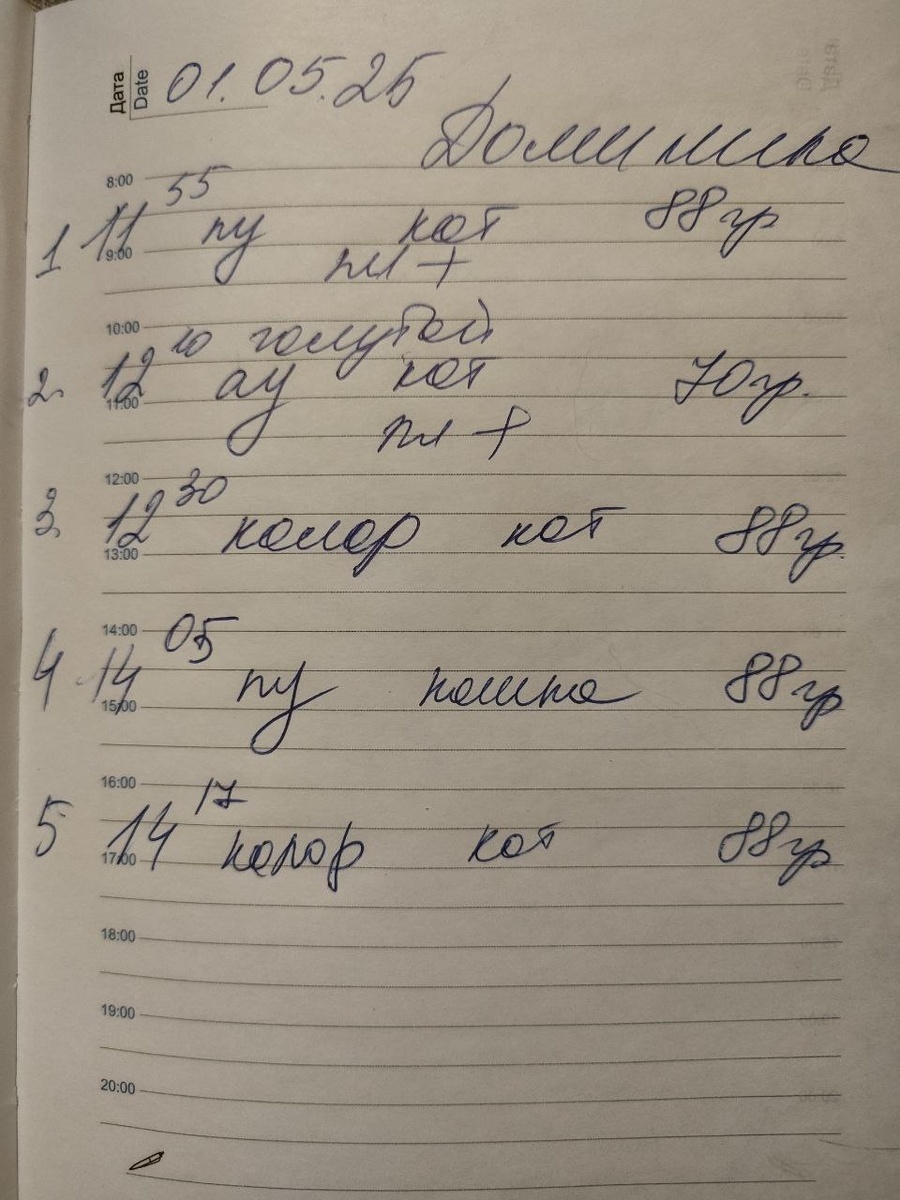 Дата
Date
01.05.25
Доминика
8:00
1 11 55 пу кот 88 гр
9:00
пл +
10:00
голубой
2. 12 10 ау кот 70 гр.
11:00
пл +
12:00
3. 12 30 колор кот 88 гр.
13:00
14:00
4 14 05 пу кошка 88 гр
15:00
16:00
5 14 17 колор кот 88 гр
17:00
18:00
19:00
20:00